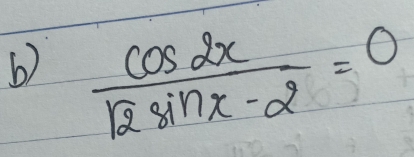 b) cos 2x / (√2 sin x - 2) = 0